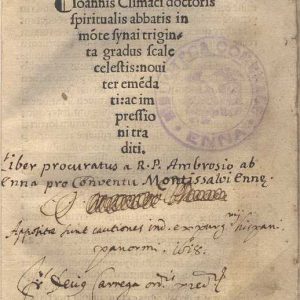 Ioannis Climaci doctoris
spiritualis abbatis in
mõte synai trigin-
ta gradus scale
celestis: noui
ter emẽda
ti: ac im
pressio
ni tra
diti.
ENNA
Liber procuratus a R. P. Ambrosio ab
Enna pro Conventu Montissalvi Ennę.
Appositæ sunt cautiones ind. expurg.
panormi. 1618.